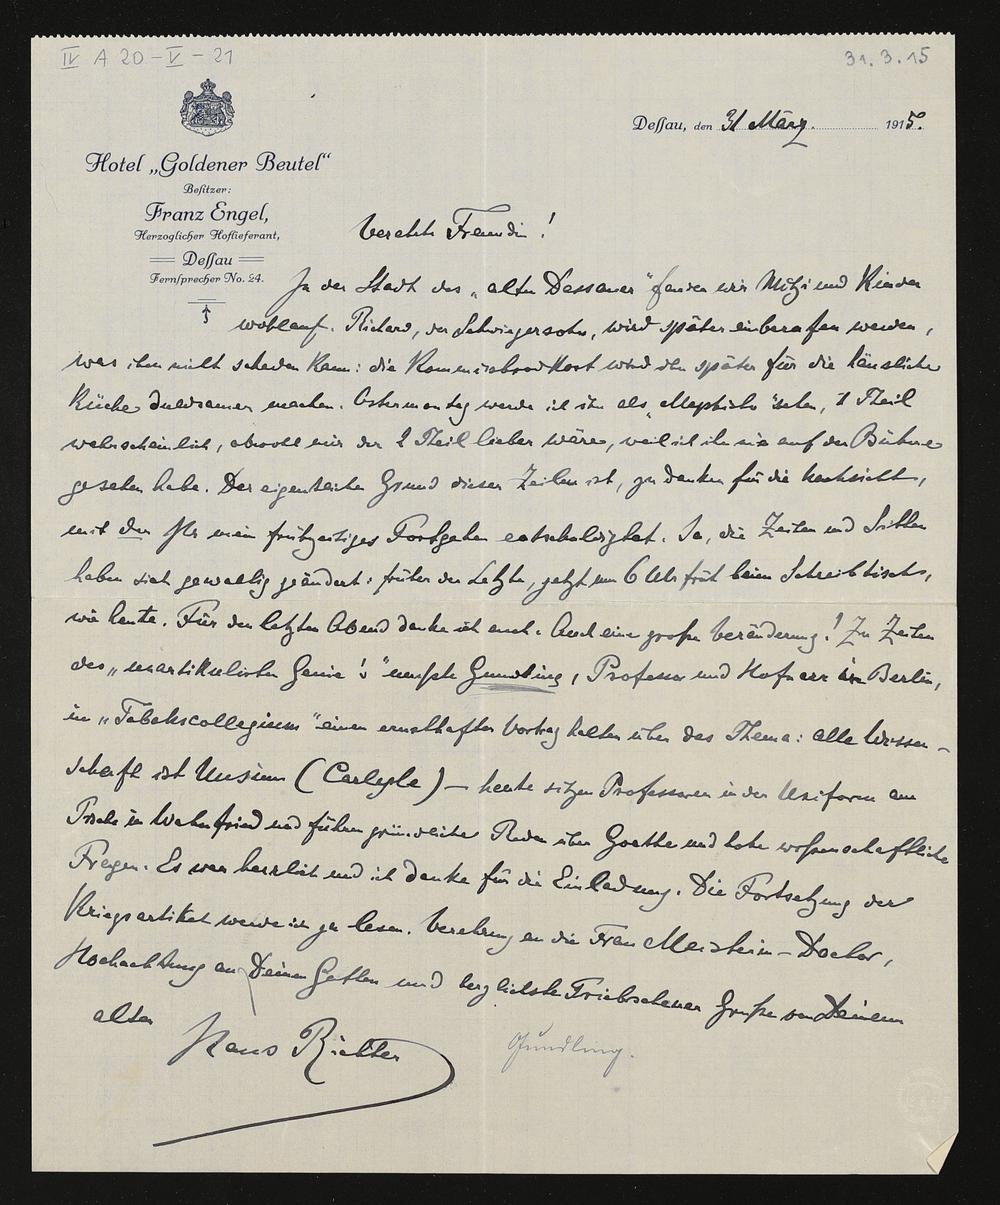 IV A 20-V-21
31.3.15
Hotel „Goldener Beutel“
Besitzer:
Franz Engel,
Herzoglicher Hoflieferant,
Dessau
Fernsprecher No. 24.
Dessau, den 31 März. 1915.
Verehrte Freundin!
In der Stadt des „alten Dessauer“ fanden wir Mitzi und Kinder
wohlauf. Richard, der Schwiegersohn, wird später einberufen werden,
was ihm nicht schaden kann: die Kommisbrodkost wird ihn später für die häusliche
Küche duldsamer machen. Ostermontag werde ich ihn als „Mephisto“ sehen, 1 Theil
wahrscheinlich, obwohl mir der 2 Theil lieber wäre, weil ich ihn nie auf der Bühne
gesehen habe. Der eigentliche Grund dieser Zeilen ist, zu danken für die Nachsicht,
mit der Ihr mein frühzeitiges Fortgehen entschuldigtet. Ja, die Zeiten und Sitten
haben sich gewaltig geändert: früher der Letzte, jetzt um 6 Uhr früh beim Schreibtisch,
wie heute. Für den letzten Abend danke ich euch. Auch eine große Veränderung! Zu Zeiten
des „unartikulirten Genie's“ mußte Gundling, Professor und Hofnarr in Berlin,
im „Tabakscollegium“ einen ernsthaften Vortrag halten über das Thema: alle Wissen-
schaft ist Unsinn (Carlyle) — heute sitzen Professoren in der Uniform am
Tische in Wahnfried und führen gründliche Reden über Goethe und hohe wissenschaftliche
Fragen. Es war herrlich und ich danke für die Einladung. Die Fortsetzung der
Kriegsartikel werde ich zu lesen. Verehrung an die Frau Meisterin-Doctor,
Hochachtung an Deinen Gatten und herzlichste Triebschener Grüße von Deinem
alten
Hans Richter
Gundling.